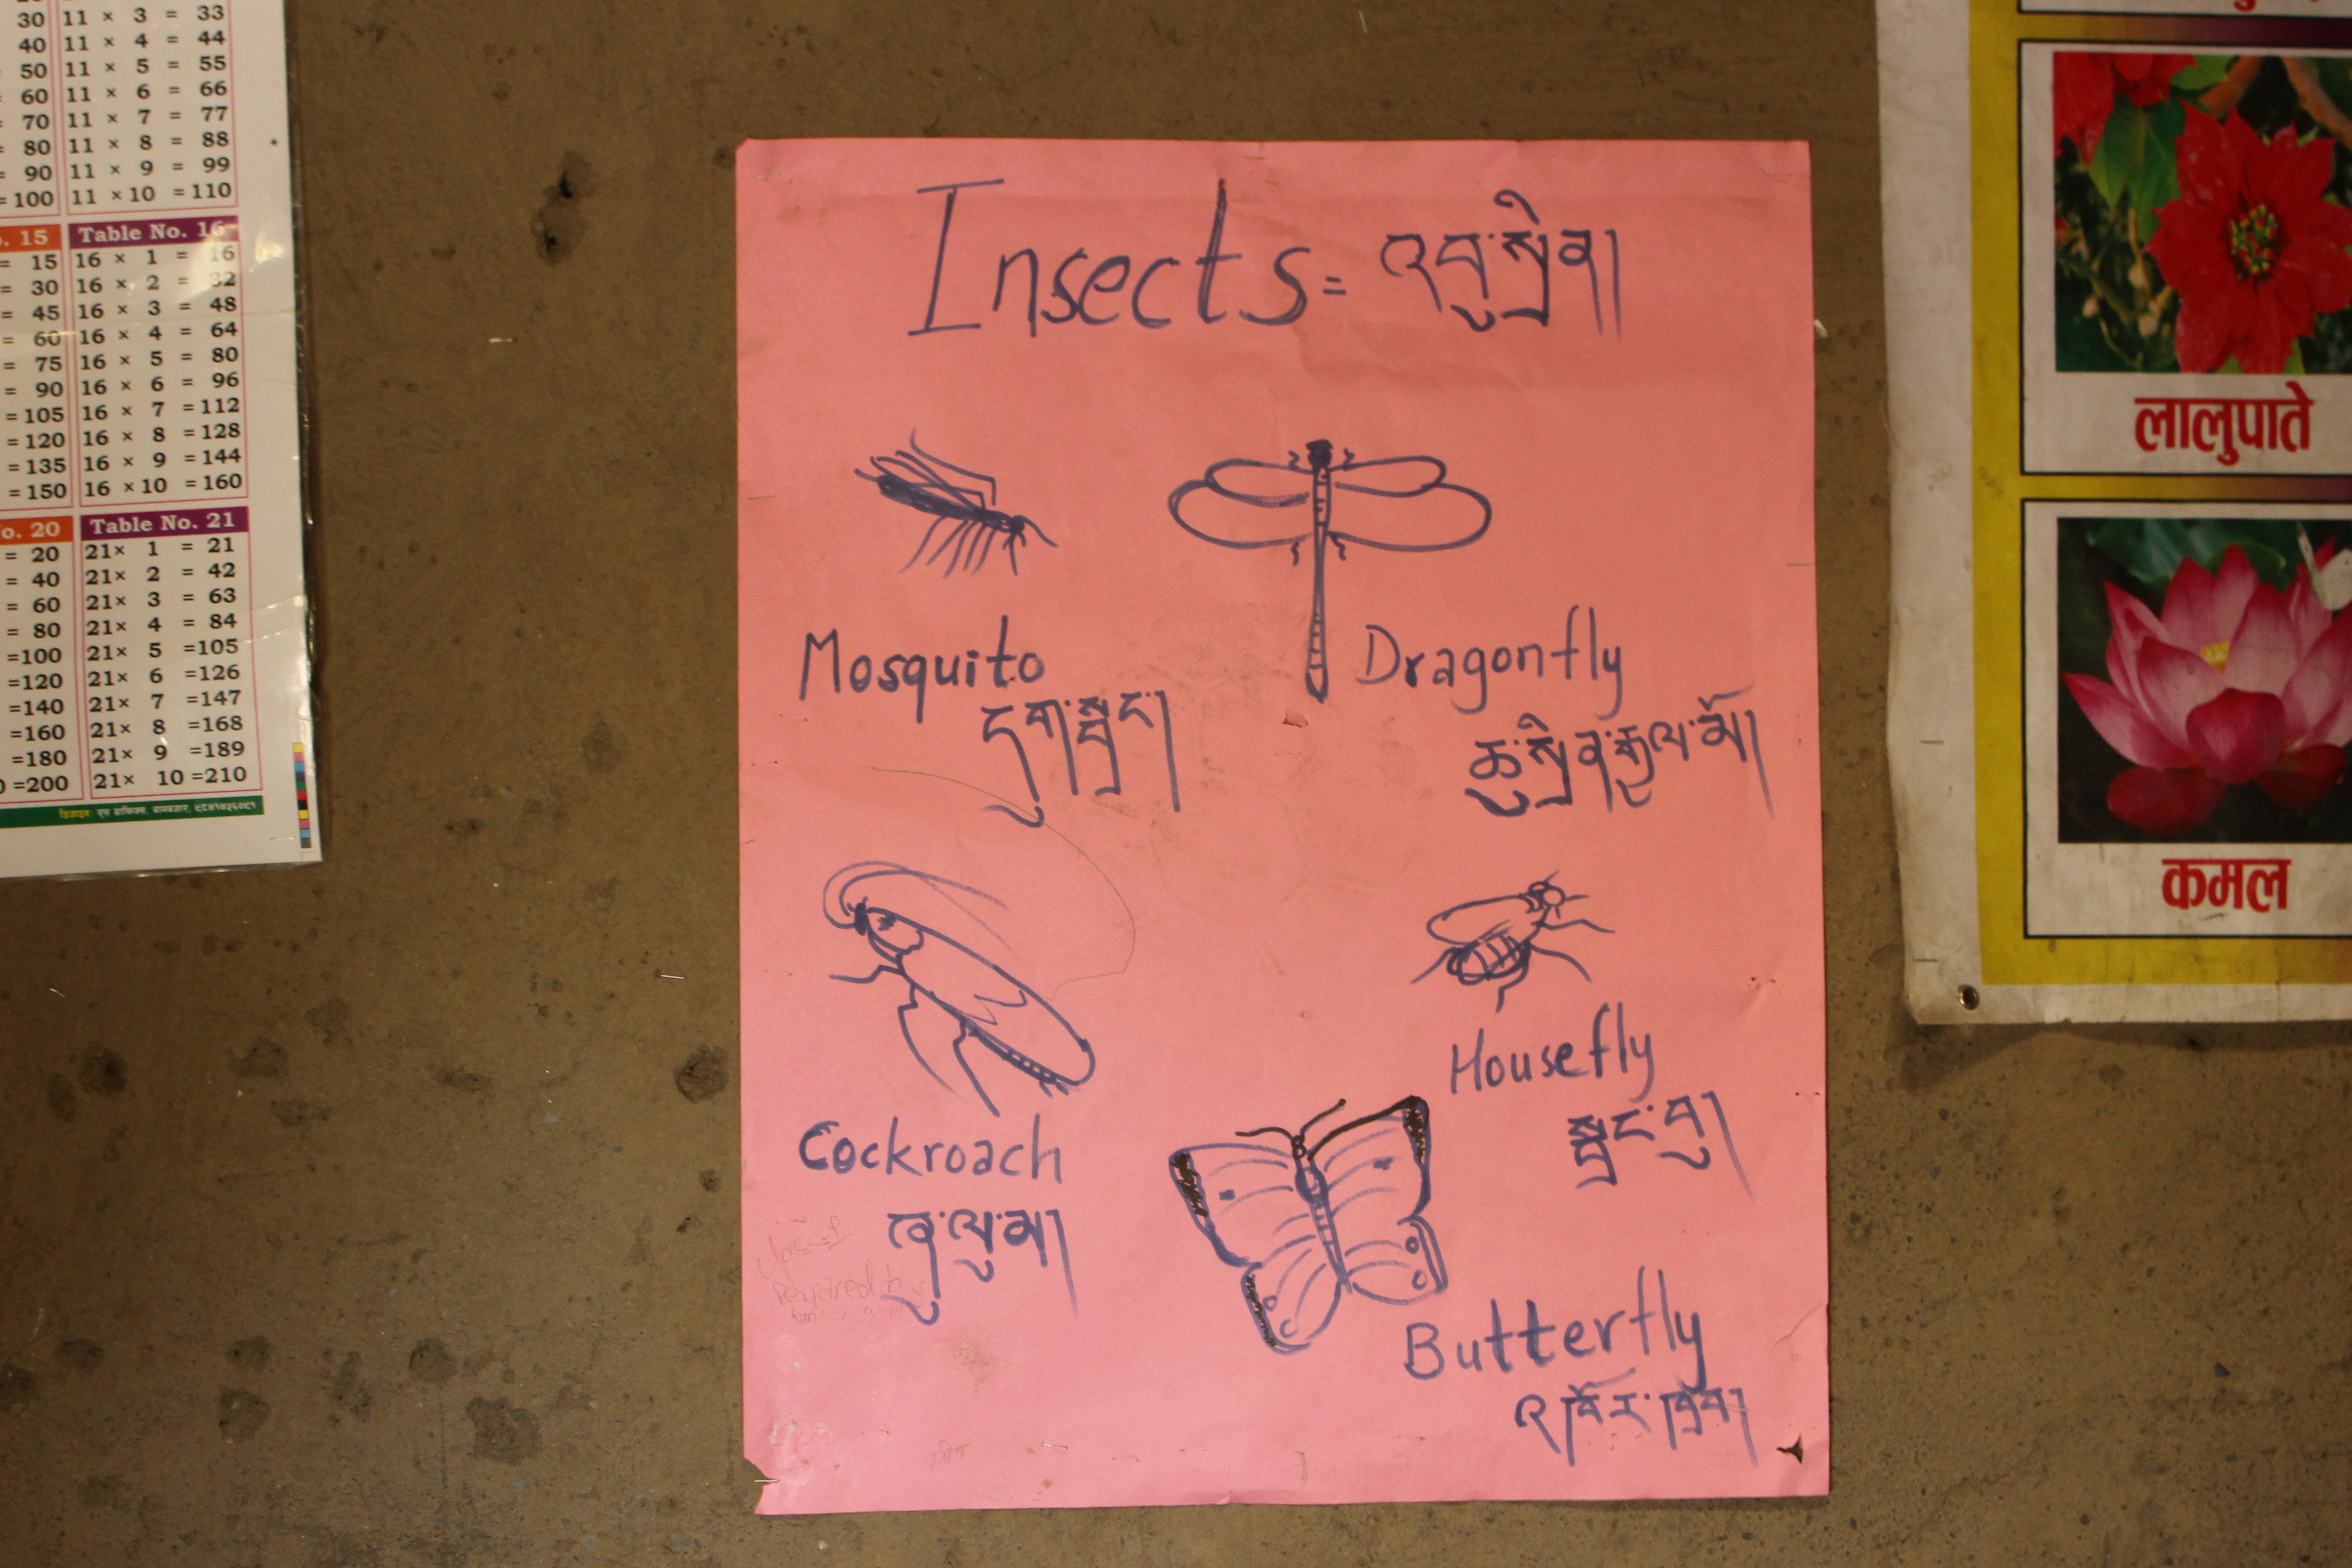 30 11 × 3 = 33
40 11 × 4 = 44
50 11 × 5 = 55
60 11 × 6 = 66
70 11 × 7 = 77
80 11 × 8 = 88
= 90 11 × 9 = 99
=100 11 ×10 =110
15 Table No. 16
= 15 16 × 1 = 16
= 30 16 × 2 = 32
= 45 16 × 3 = 48
= 60 16 × 4 = 64
= 75 16 × 5 = 80
= 90 16 × 6 = 96
=105 16 × 7 =112
=120 16 × 8 =128
=135 16 × 9 =144
=150 16 ×10 =160
o. 20 Table No. 21
= 20 21× 1 = 21
= 40 21× 2 = 42
= 60 21× 3 = 63
= 80 21× 4 = 84
=100 21× 5 =105
=120 21× 6 =126
=140 21× 7 =147
=160 21× 8 =168
=180 21× 9 =189
=200 21× 10 =210
Insects = འབུ་སྲིན།
Mosquito
དུག་སྦྲང་།
Dragonfly
ཆུ་སྲིན་རྒྱལ་མོ།
Cockroach
Housefly
སྦྲང་བུ།
Butterfly
perpared by
लालुपाते
कमल